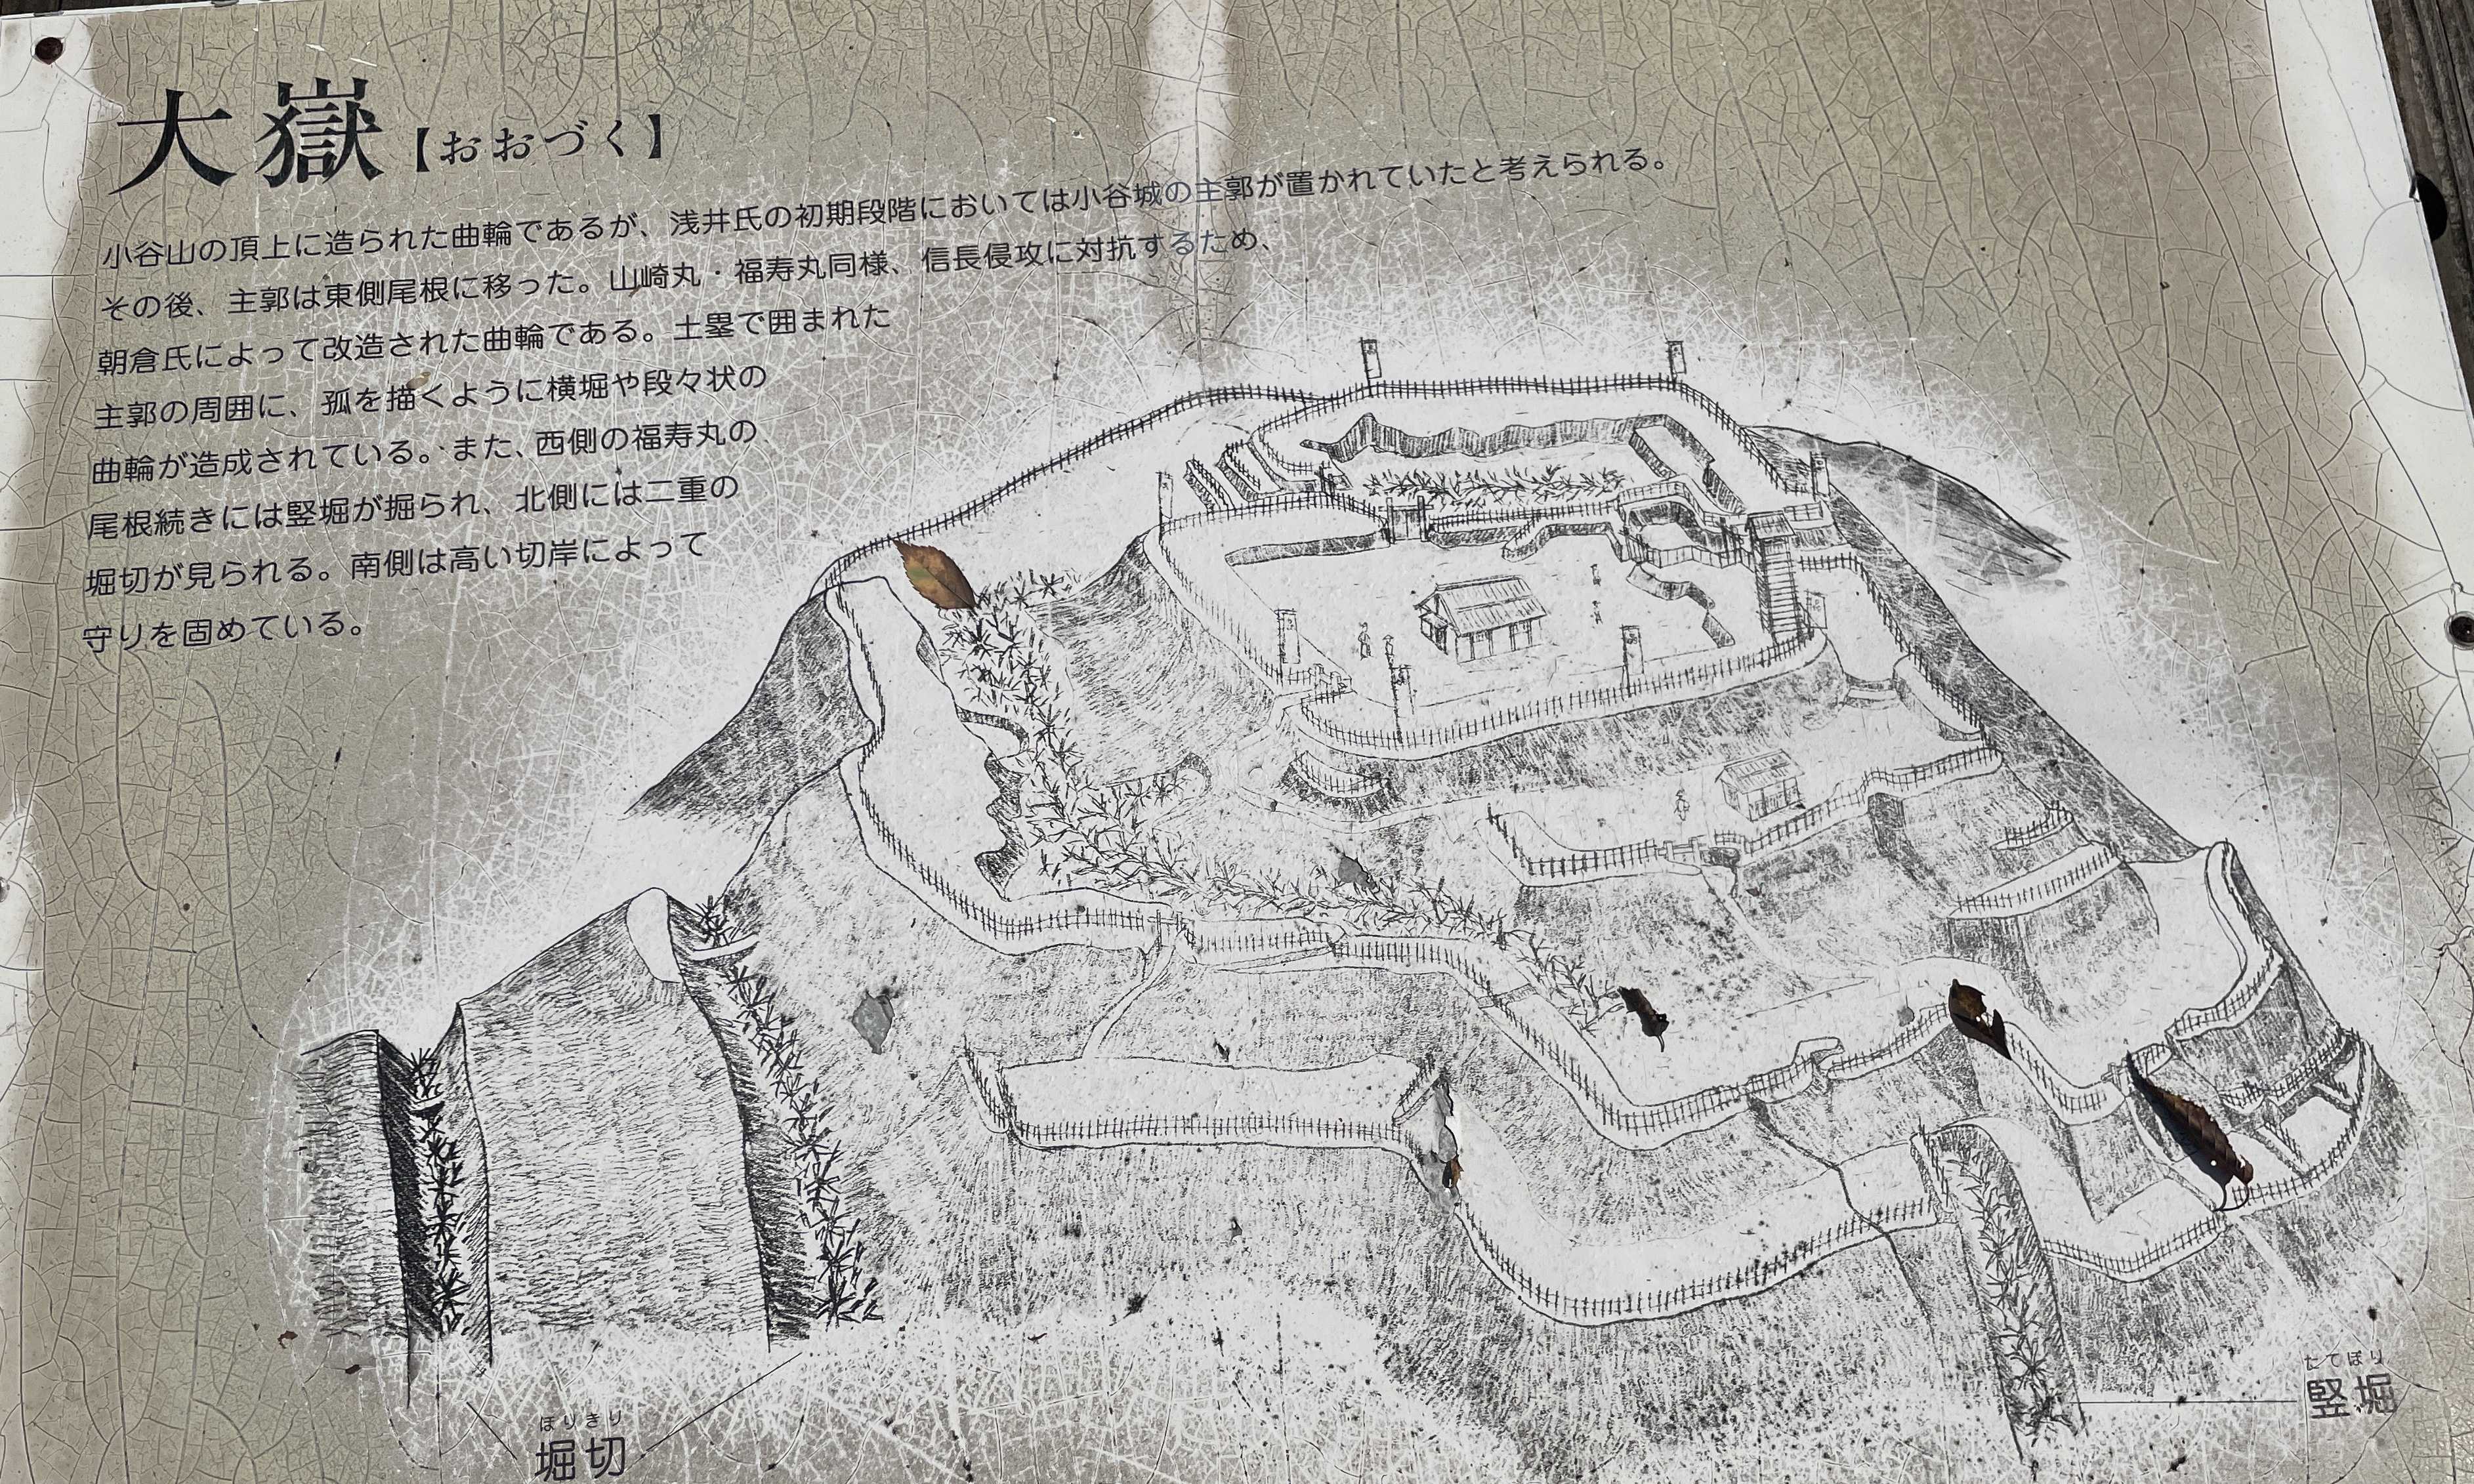 大嶽【おおづく】
小谷山の頂上に造られた曲輪であるが、浅井氏の初期段階においては小谷城の主郭が置かれていたと考えられる。
その後、主郭は東側尾根に移った。山崎丸・福寿丸同様、信長侵攻に対抗するため、
朝倉氏によって改造された曲輪である。土塁で囲まれた
主郭の周囲に、孤を描くように横堀や段々状の
曲輪が造成されている。また、西側の福寿丸の
尾根続きには竪堀が掘られ、北側には二重の
堀切が見られる。南側は高い切岸によって
守りを固めている。
たてぼり
竪堀
ほりきり
堀切